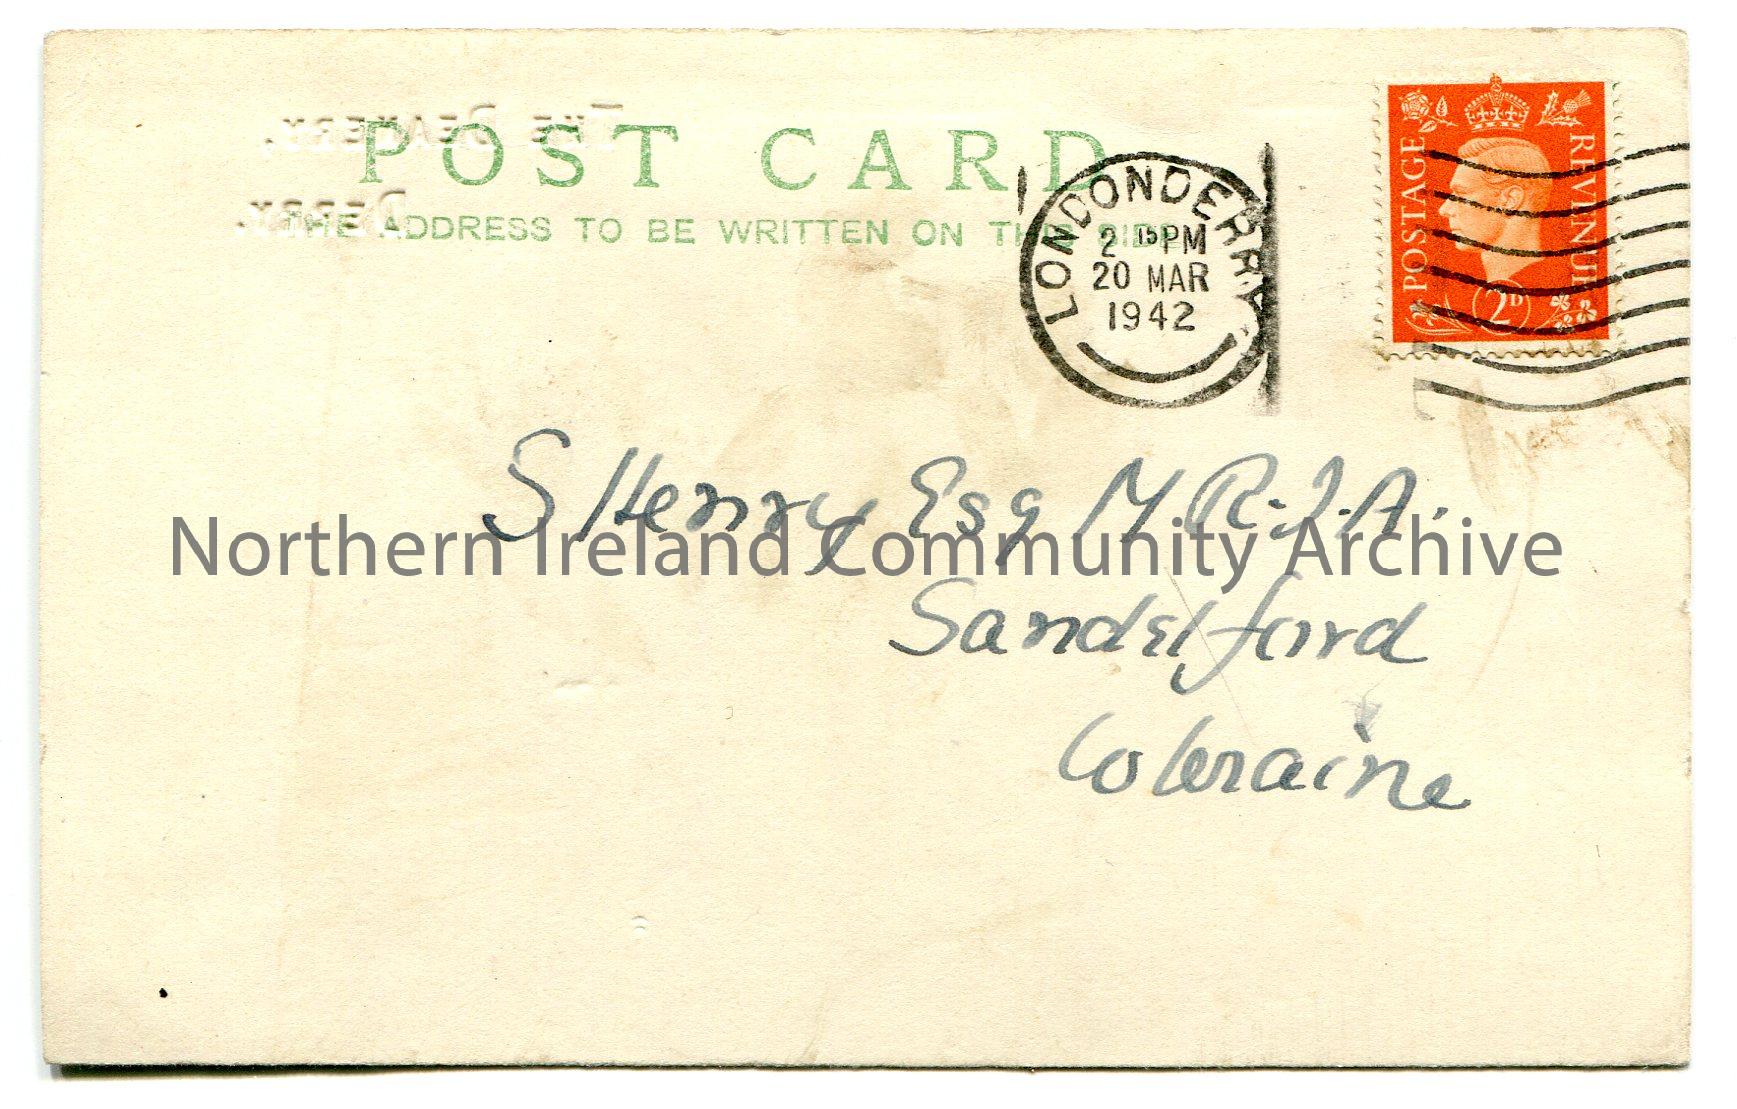 THE DEANERY,
POST CARD
DERRY.
THE ADDRESS TO BE WRITTEN ON THIS SIDE
LONDONDERRY
2 15 PM
20 MAR
1942
POSTAGE
REVENUE
2D
S Henry Esq M.R.I.A.
Northern Ireland Community Archive
Sandelford
Coleraine